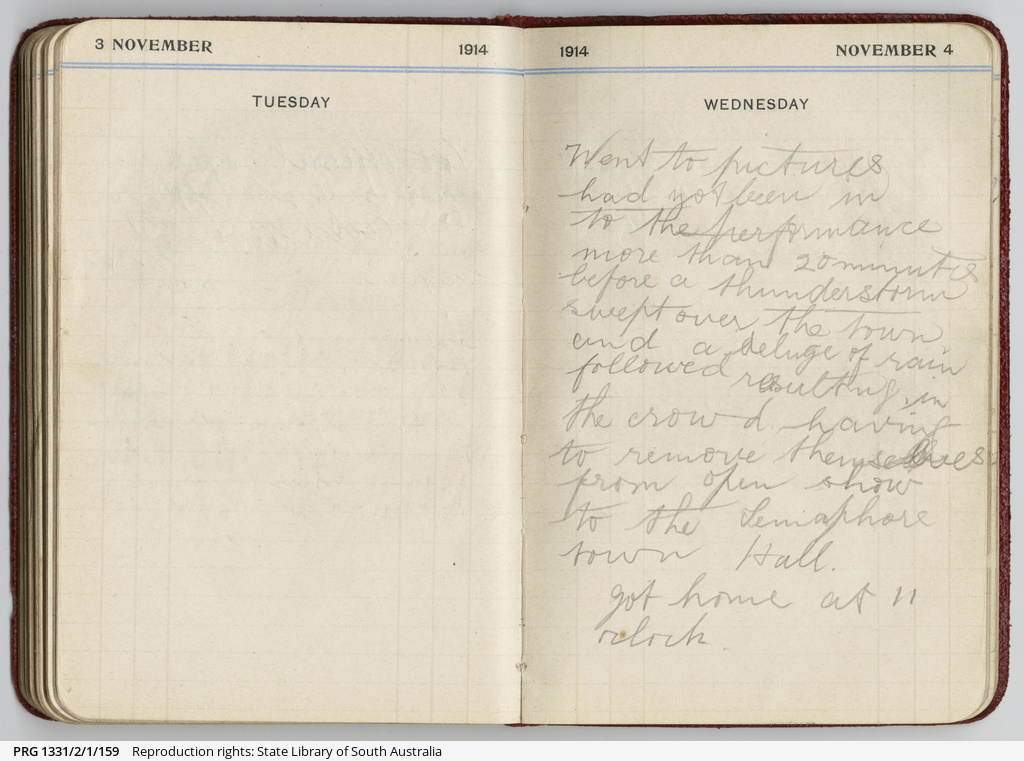 3 NOVEMBER 1914
TUESDAY
1914 NOVEMBER 4
WEDNESDAY
Went to pictures
had not been in
to the performance
more than 20 minutes
before a thunderstorm
swept over the town
and a deluge of rain
followed resulting in
the crowd having
to remove themselves
from open show
to the Semaphore
town Hall.
got home at 11
oclock.
PRG 1331/2/1/159 Reproduction rights: State Library of South Australia